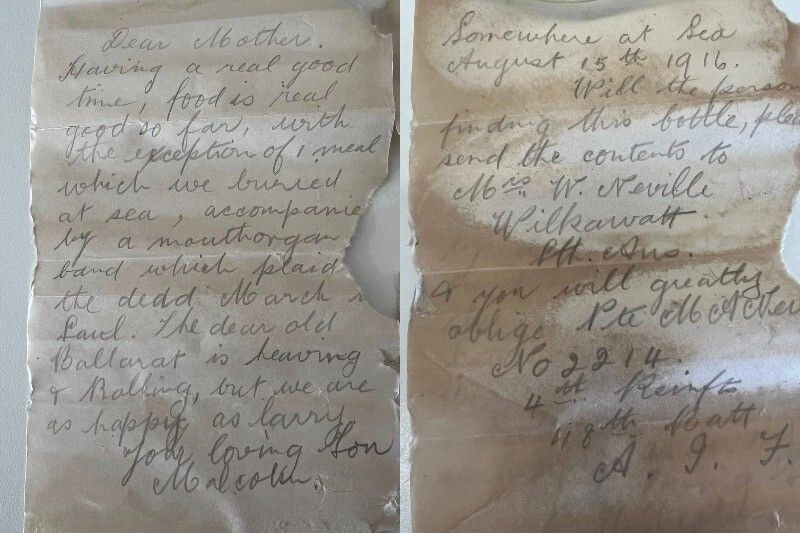 Dear Mother.
Having a real good
time, food is real
good so far, with
the exception of 1 meal
which we buried
at sea, accompanie
by a mouthorgan
band which plaid
the dedd March
Saul. The dear old
Ballarat is heaving
& Rolling, but we are
as happy as larry
Your loving Son
Malcolm.
Somewhere at Sea
August 15th 1916.
Will the person
finding this bottle, plea
send the contents to
Mrs. W. Neville
Wilkawatt.
Sth. Aus.
& you will greatly
oblige Pte M A Nev
No 2214.
4th Reinft
48th Batt
A. I. F.